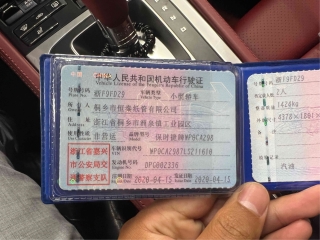 中华人民共和国机动车行驶证
Vehicle License of the People's Republic of China
号牌号码 F9FD29 车辆类型 小型轿车
所有人 桐乡市恒泰纸管有限公司
住址 浙江省桐乡市 工业园区
使用性质 非营运 品牌型号 保时捷牌WP0CA298
浙江省嘉兴
市公安局交
通警察支队
车辆识别代号
发动机号码 DPG002336
注册日期 2020-04-15 发证日期 2020-04-15
F9FD29
2人
1424kg
汽油